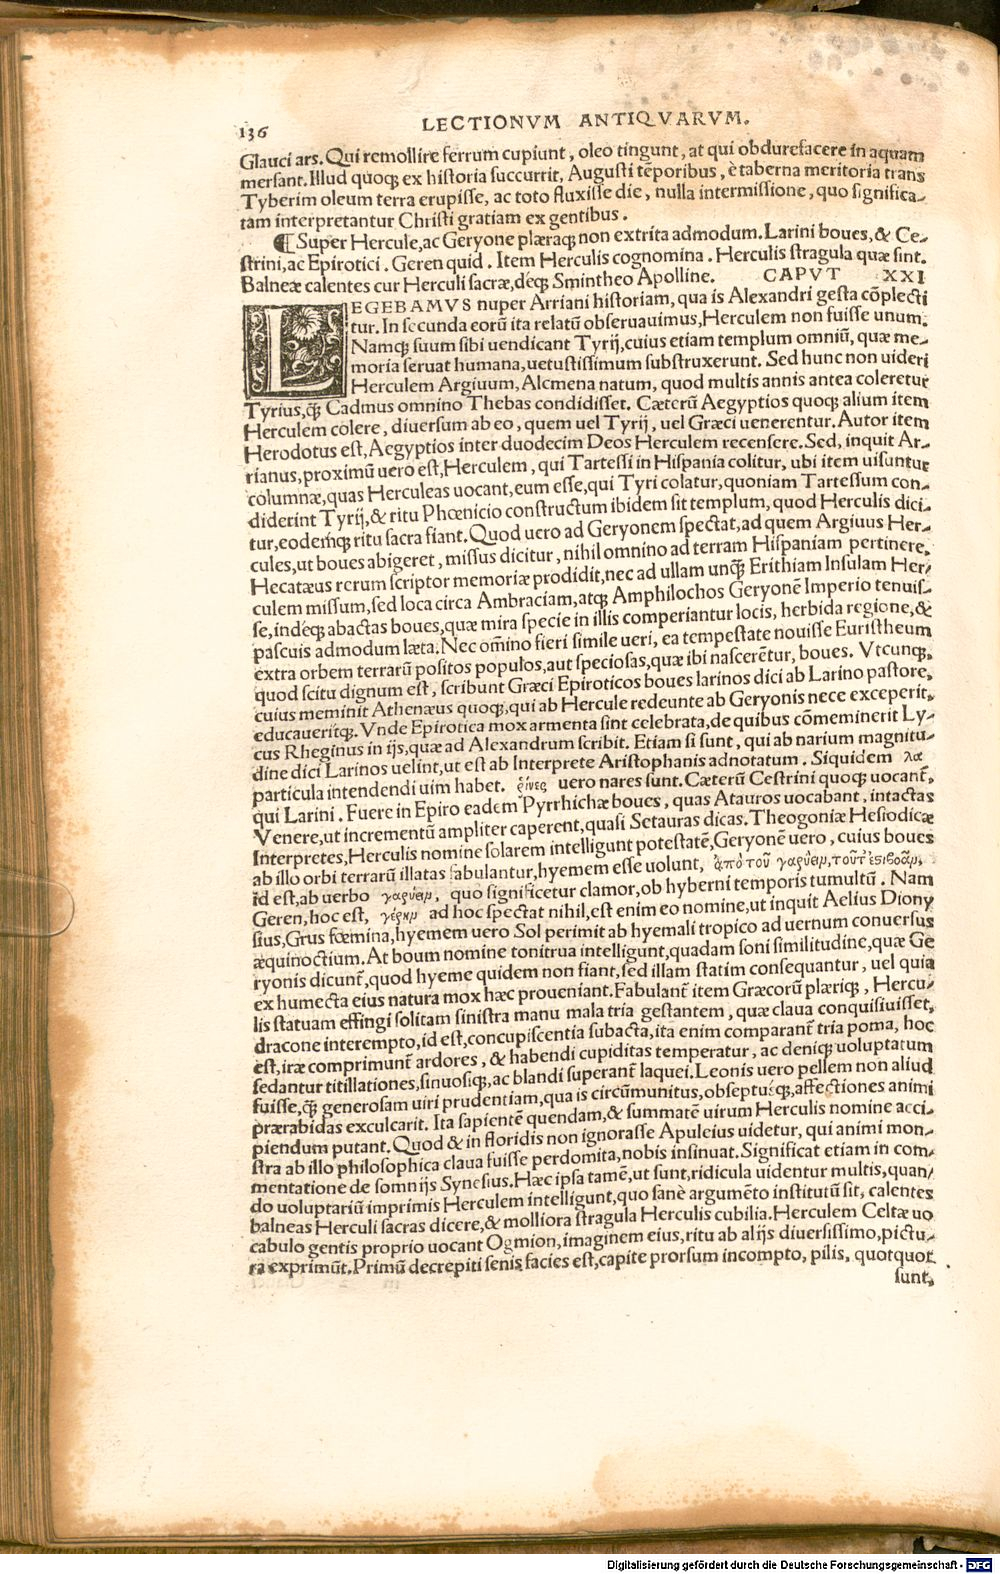 136
LECTIONVM ANTIQVARVM.
Glauci ars. Qui remollire ferrum cupiunt, oleo tingunt, at qui obdurefacere in aquam
mersant. Illud quoqꝫ ex historia succurrit, Augusti teporibus, è taberna meritoria trans
Tyberim oleum terra erupisse, ac toto fluxisse die, nulla intermissione, quo significa-
tam interpretantur Christi gratiam ex gentibus.
¶ Super Hercule, ac Geryone plæraqꝫ non extrita admodum. Larini boues, & Ce-
strini, ac Epirotici. Geren quid. Item Herculis cognomina. Herculis stragula quæ sint.
Balneæ calentes cur Herculi sacræ, deqꝫ Smintheo Apolline. CAPVT XXI
LEGEBAMVS nuper Arriani historiam, qua is Alexandri gesta cõplecti
tur. In secunda eorũ ita relatũ obseruauimus, Herculem non fuisse unum.
Namqꝫ suum sibi uendicant Tyrij, cuius etiam templum omniũ, quæ me-
moria seruat humana, uetustissimum substruxerunt. Sed hunc non uideri
Herculem Argiuum, Alcmena natum, quod multis annis antea coleretur
Tyrius, q̃ꝫ Cadmus omnino Thebas condidisset. Cæterũ Aegyptios quoqꝫ alium item
Herculem colere, diuersum ab eo, quem uel Tyrij, uel Græci uenerentur. Autor item
Herodotus est, Aegyptios inter duodecim Deos Herculem recensere. Sed, inquit Ar-
rianus, proximũ uero est, Herculem, qui Tartessi in Hispania colitur, ubi item uisuntur
columnæ, quas Herculeas uocant, eum esse, qui Tyri colatur, quoniam Tartessum con-
diderint Tyrij, & ritu Phœnicio constructum ibidem sit templum, quod Herculis dici-
tur, eodemqꝫ ritu sacra fiant. Quod uero ad Geryonem spectat, ad quem Argiuus Her-
cules, ut boues abigeret, missus dicitur, nihil omnino ad terram Hispaniam pertinere,
Hecatæus rerum scriptor memoriæ prodidit, nec ad ullam unq̃ꝫ Erithiam Insulam Her-
culem missum, sed loca circa Ambraciam, atqꝫ Amphilochos Geryonẽ Imperio tenuis-
se, indeqꝫ abactas boues, quæ mira specie in illis comperiantur locis, herbida regione, &
pascuis admodum læta. Nec om̃ino fieri simile ueri, ea tempestate nouisse Euristheum
extra orbem terrarũ positos populos, aut speciosas, quæ ibi nascerẽtur, boues. Vtcunqꝫ,
quod scitu dignum est, scribunt Græci Epiroticos boues larinos dici ab Larino pastore,
cuius meminit Athenæus quoqꝫ, qui ab Hercule redeunte ab Geryonis nece exceperit,
educaueritqꝫ. Vnde Epirotica mox armenta sint celebrata, de quibus cõmeminerit Ly-
cus Rheginus in ijs, quæ ad Alexandrum scribit. Etiam si sunt, qui ab narium magnitu-
dine dici Larinos uelint, ut est ab Interprete Aristophanis adnotatum. Siquidem λα
particula intendendi uim habet. ῥῖνες uero nares sunt. Cæterũ Cestrini quoqꝫ uocant̃,
qui Larini. Fuere in Epiro eadem Pyrrhichæ boues, quas Atauros uocabant, intactas
Venere, ut incrementũ ampliter caperent, quasi Setauras dicas. Theogoniæ Hesiodicæ
Interpretes, Herculis nomine solarem intelligunt potestatẽ, Geryonẽ uero, cuius boues
ab illo orbi terrarũ illatas fabulantur, hyemem esse uolunt, ἀπὸ τοῦ γαρύειν, τοῦτ᾽ ἐπιβοᾶν,
id est, ab uerbo γαρύειν, quo significetur clamor, ob hyberni temporis tumultũ. Nam
Geren, hoc est, γέρην ad hoc spectat nihil, est enim eo nomine, ut inquit Aelius Diony
sius, Grus fœmina, hyemem uero Sol perimit ab hyemali tropico ad uernum conuersus
æquinoctium. At boum nomine tonitrua intelligunt, quadam soni similitudine, quæ Ge
ryonis dicunt̃, quod hyeme quidem non fiant, sed illam statim consequantur, uel quia
ex humecta eius natura mox hæc proueniant. Fabulant̃ item Græcorũ plæriqꝫ, Hercu-
lis statuam effingi solitam sinistra manu mala tria gestantem, quæ claua conquisiuisset,
dracone interempto, id est, concupiscentia subacta, ita enim comparant̃ tria poma, hoc
est, iræ comprimunt̃ ardores, & habendi cupiditas temperatur, ac deniqꝫ uoluptatum
sedantur titillationes, sinuosiqꝫ, ac blandi superant̃ laquei. Leonis uero pellem non aliud
fuisse, q̃ꝫ generosam uiri prudentiam, qua is circũmunitus, obseptusqꝫ, affectiones animi
prærabidas exculcarit. Ita sapientẽ quendam, & summatẽ uirum Herculis nomine acci-
piendum putant. Quod & in floridis non ignorasse Apuleius uidetur, qui animi mon-
stra ab illo philosophica claua fuisse perdomita, nobis insinuat. Significat etiam in com-
mentatione de somnijs Synesius. Hæc ipsa tamẽ, ut sunt, ridicula uidentur multis, quan-
do uoluptariũ imprimis Herculem intelligunt, quo sanè argumẽto institutũ sit, calentes
balneas Herculi sacras dicere, & molliora stragula Herculis cubilia. Herculem Celtæ uo
cabulo gentis proprio uocant Ogmion, imaginem eius, ritu ab alijs diuersissimo, pictu-
ra exprimũt. Primũ decrepiti senis facies est, capite prorsum incompto, pilis, quotquot
sunt,
Digitalisierung gefördert durch die Deutsche Forschungsgemeinschaft - DFG